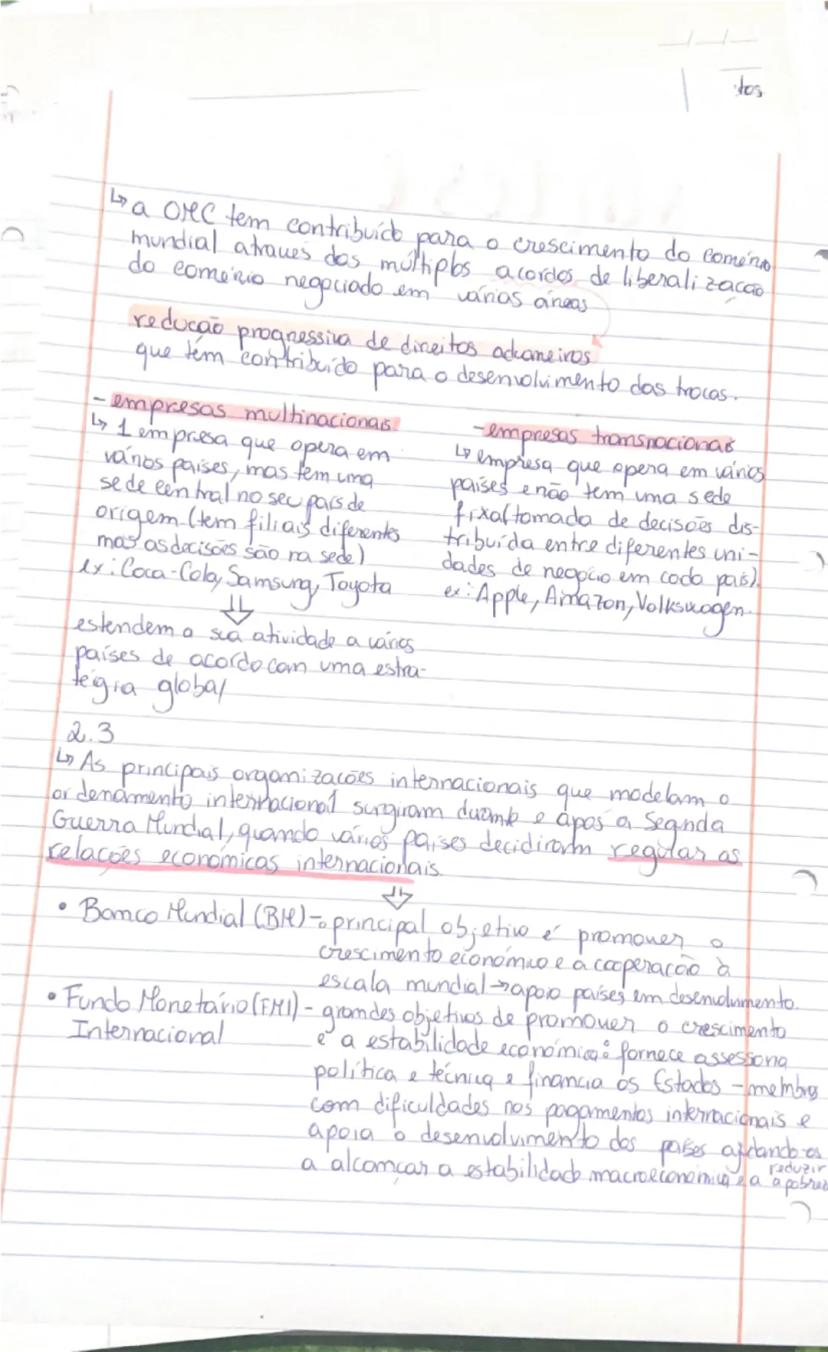 tos
↳ a OMC tem contribuído para o crescimento do comércio
mundial através dos múltiplos acordos de liberalização
do comércio negociado em várias áreas
redução progressiva de direitos aduaneiros
que têm contribuído para o desenvolvimento das trocas.
- empresas multinacionais
↳ 1 empresa que opera em
vários países, mas tem uma
sede central no seu país de
origem (tem filiais diferentes
mas as decisões são na sede)
ex: Coca-Cola, Samsung, Toyota
⇓
estendem a sua atividade a vários
países de acordo com uma estra-
tégia global
- empresas transnacionais
↳ empresa que opera em vários
países e não tem uma sede
fixa (tomada de decisões dis-
tribuída entre diferentes uni-
dades de negócio em cada país).
ex: Apple, Amazon, Volkswagen.
2.3
↳ As principais organizações internacionais que modelam o
ordenamento internacional surgiram durante e após a Segunda
Guerra Mundial, quando vários países decidiram regular as
relações económicas internacionais.
⇓
• Banco Mundial (BM) - o principal objetivo é promover o
crescimento económico e a cooperação à
escala mundial → apoio países em desenvolvimento.
• Fundo Monetário (FMI) - grandes objetivos de promover o crescimento
Internacional e a estabilidade económica: fornece assessoria
política e técnica e financia os Estados-membros
com dificuldades nos pagamentos internacionais e
apoia o desenvolvimento dos países ajudando-os
a alcançar a estabilidade macroeconómica e a reduzir
a pobreza